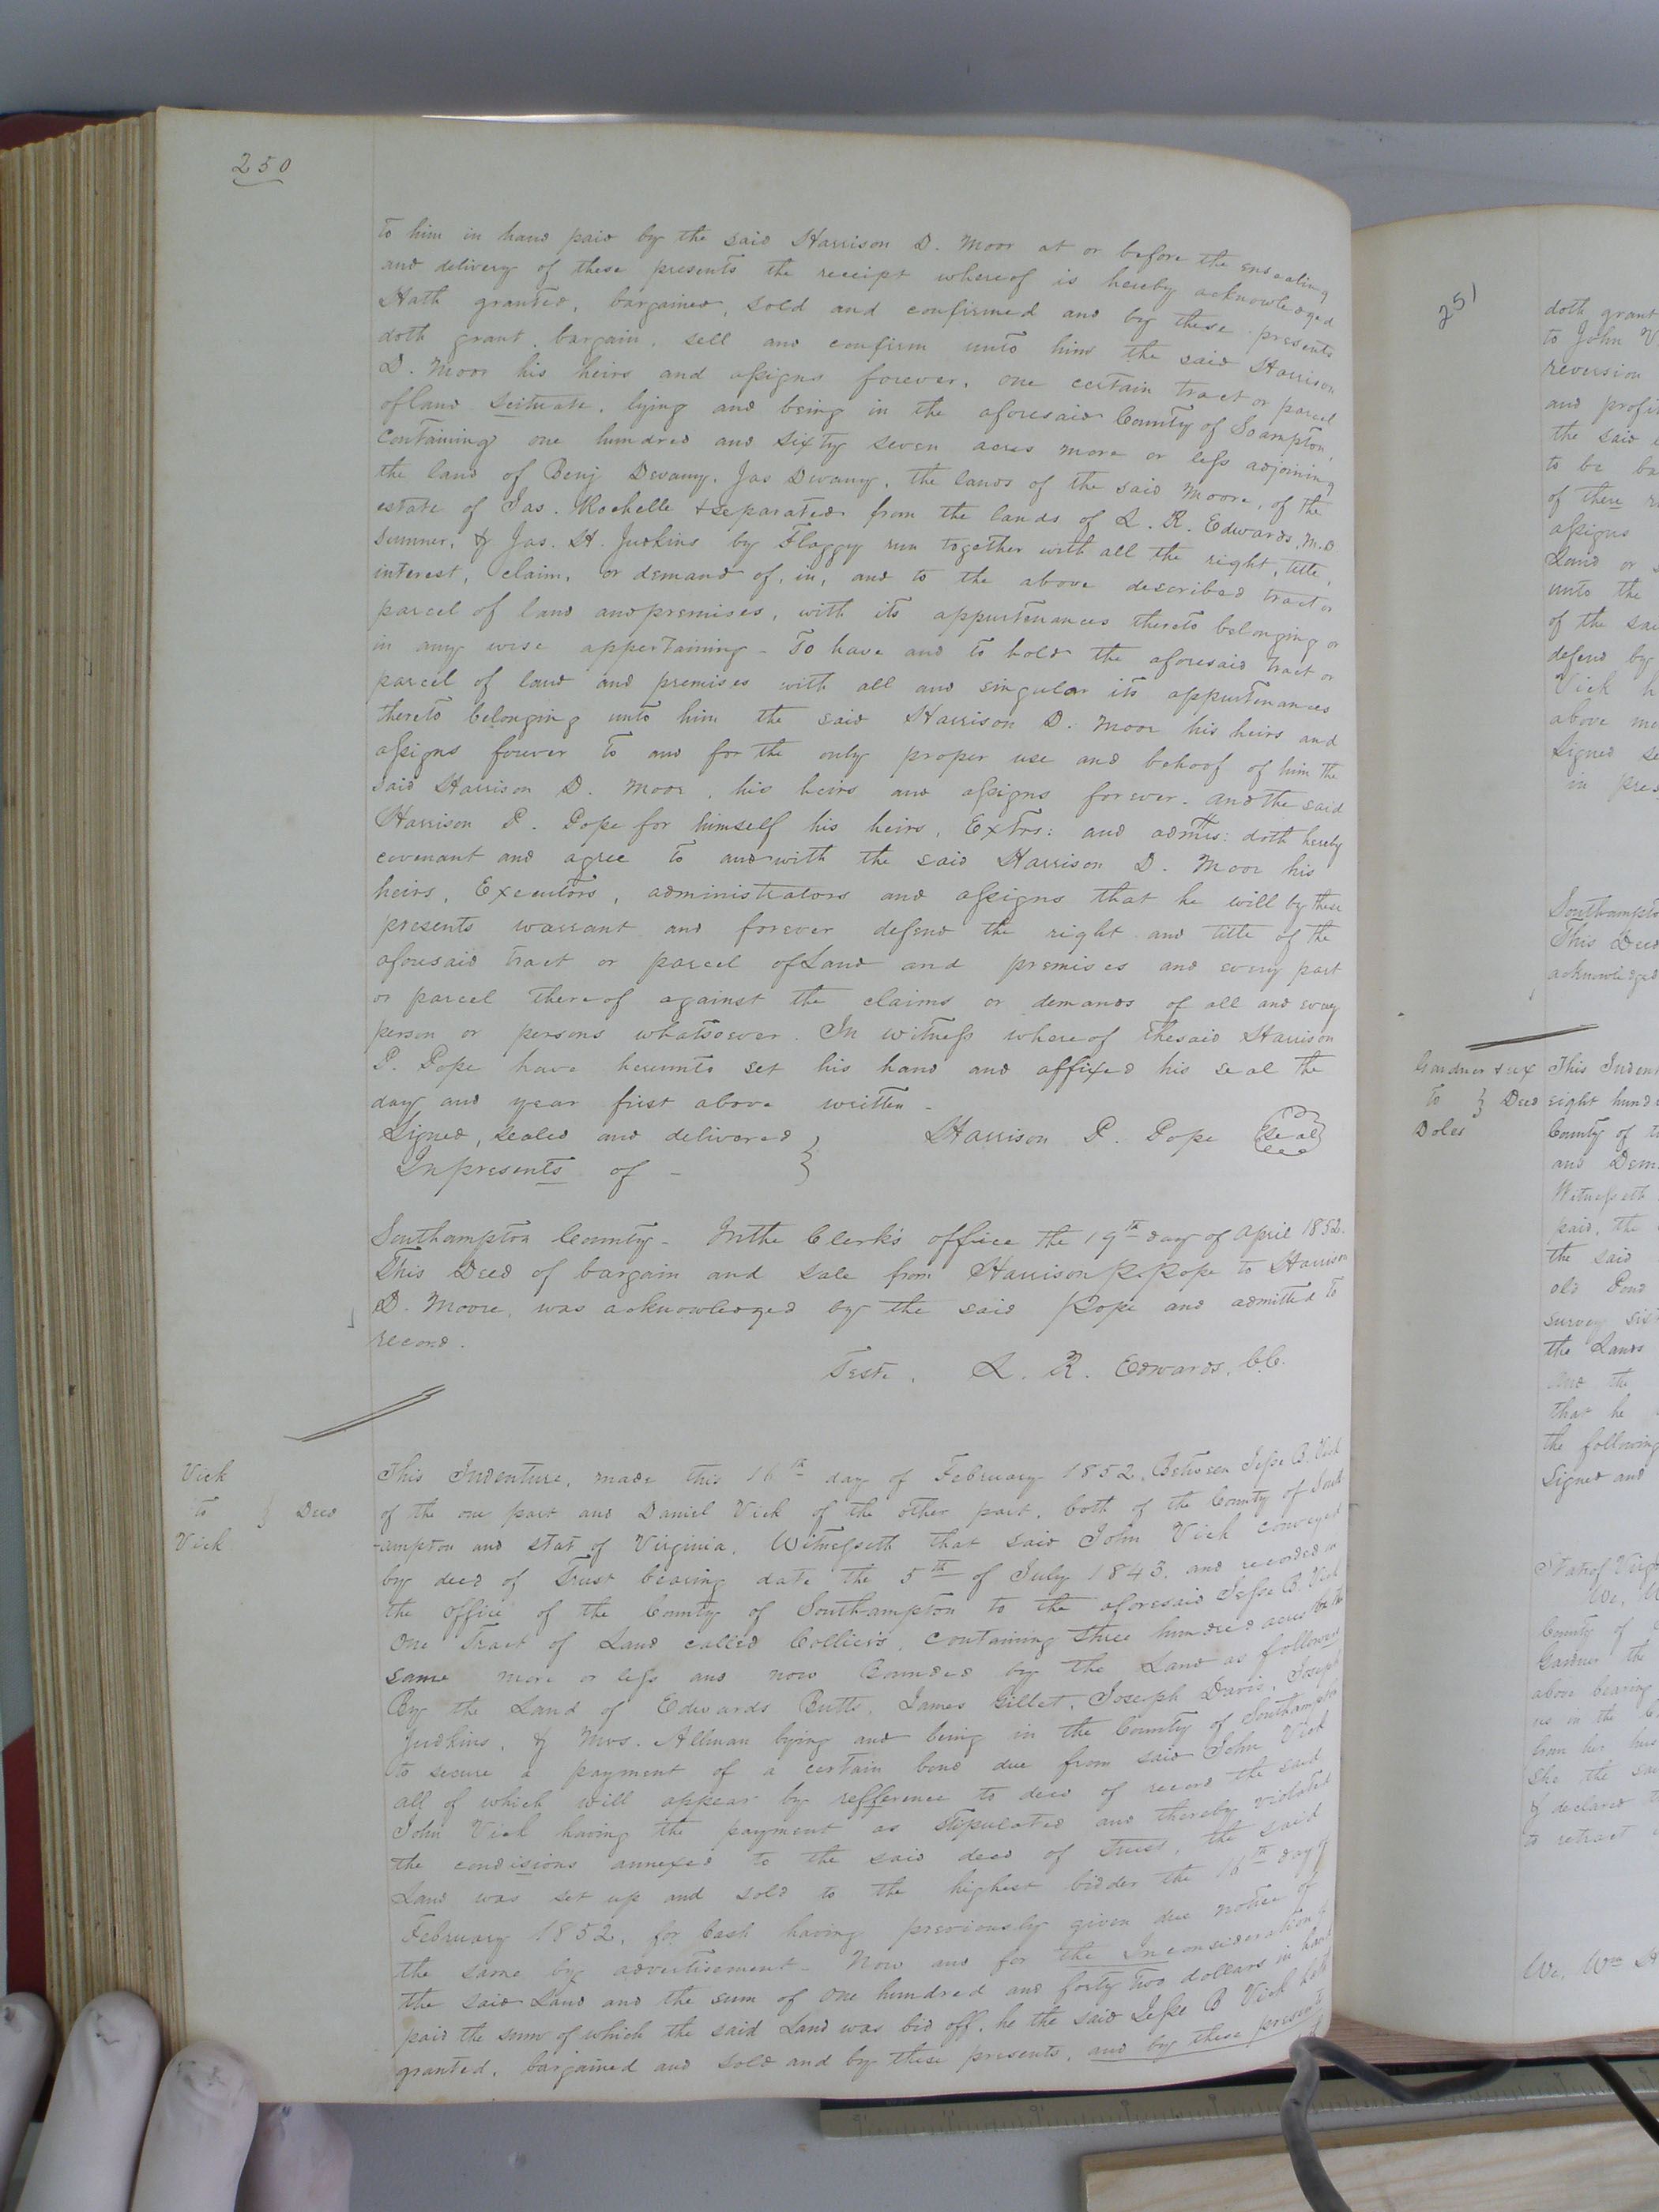 250
to him in hand paid by the said Harrison D. Moor at or before the ensealing
and delivery of these presents the receipt whereof is hereby acknowledged
Hath granted, bargained, sold and confirmed and by these presents
doth grant, bargain, sell and confirm unto him the said Harrison
D. Moor his heirs and assigns forever, one certain tract or parcel
of land Scituate, lying and being in the aforesaid County of Soampton,
Containing one hundred and sixty seven acres more or less adjoining
the land of Benj Devany, Jas Devany, the lands of the said Moore, of the
estate of Jas. Rochelle & separated from the lands of L. R. Edwards, M. D
Sumner, & Jas. H. Judkins by Flaggy run together with all the right, title,
interest, claim, or demand of, in, and to the above described tract or
parcel of land and premises, with its appurtenances thereto belonging or
in any wise appertaining - To have and to hold the aforesaid tract or
parcel of land and premises with all and singular its appurtenances
thereto belonging unto him the said Harrison D. Moor his heirs and
assigns forever to and for the only proper use and behoof of him the
said Harrison D. Moor, his heirs and assigns forever. And the said
Harrison P. Pope for himself his heirs, Extrs: and admrs: doth hereby
covenant and agree to and with the said Harrison D. Moor his
heirs, Executors, administrators and assigns that he will by these
presents warrant and forever defend the right and title of the
aforesaid tract or parcel of Land and premises and every part
or parcel thereof against the claims or demands of all and every
person or persons whatsoever. In witness whereof the said Harrison
P. Pope have hereunto set his hand and affixed his seal the
day and year first above written -
Signed, Sealed and delivered } Harrison P. Pope Seal
In presents of -
Southampton County - In the Clerk's office the 19th day of April 1852.
This Deed of bargain and sale from Harrison P. Pope to Harrison
D. Moore, was acknowledged by the said Pope and admitted to
record.
Teste, L. R. Edwards, C.C.
Vick
to } Deed
Vick
This Indenture, made this 16th day of February 1852, Between Jesse B. Vick
of the one part and Daniel Vick of the other part, both of the County of South
-ampton and stat of Virginia, Witnesseth that said John Vick conveyed
by deed of Trust bearing date the 5th of July 1843, and recorded in
the office of the County of Southampton to the aforesaid Jesse B. Vick
One Tract of Land called Collier's, Containing three hundred acres be the
same more or less and now Bounded by the Land as followes
By the Land of Edwards Butts, James Gillet, Joseph Davis, Joseph
Judkins, & Mrs. Allman lying and being in the County of Southampton
to secure a payment of a certain bond due from said John Vick
all of which will appear by refference to deed of record the said
John Vick having the payment as stipulated and thereby violated
the condisions annexed to the said deed of trust, the said
Land was set up and sold to the highest bidder the 16th day of
February 1852, for Cash having previously given due notice of
the same by advertisement - Now and for the In consideration of
the said Land and the sum of One hundred and forty two dollars in hand
paid the sum of which the said Land was bid off, he the said Jesse B Vick hath
granted, bargained and sold and by these presents, and by these presents
251
doth grant
to John
reversion
and
the said
to be
of there
assigns
Land or
unto the
of the
defend by
Vick
above
Signed
in
This Deed
acknowledged
Gardner & ux
to } Deed
Doles
This
eight
County of
and
Witnesseth
paid, the
the said
old Pond
survey
the Lands
And the
that he
the following
Signed and
We,
County of
Gardner the
above bearing
us in the
from her
She the
& declared
to retract
We, Wm